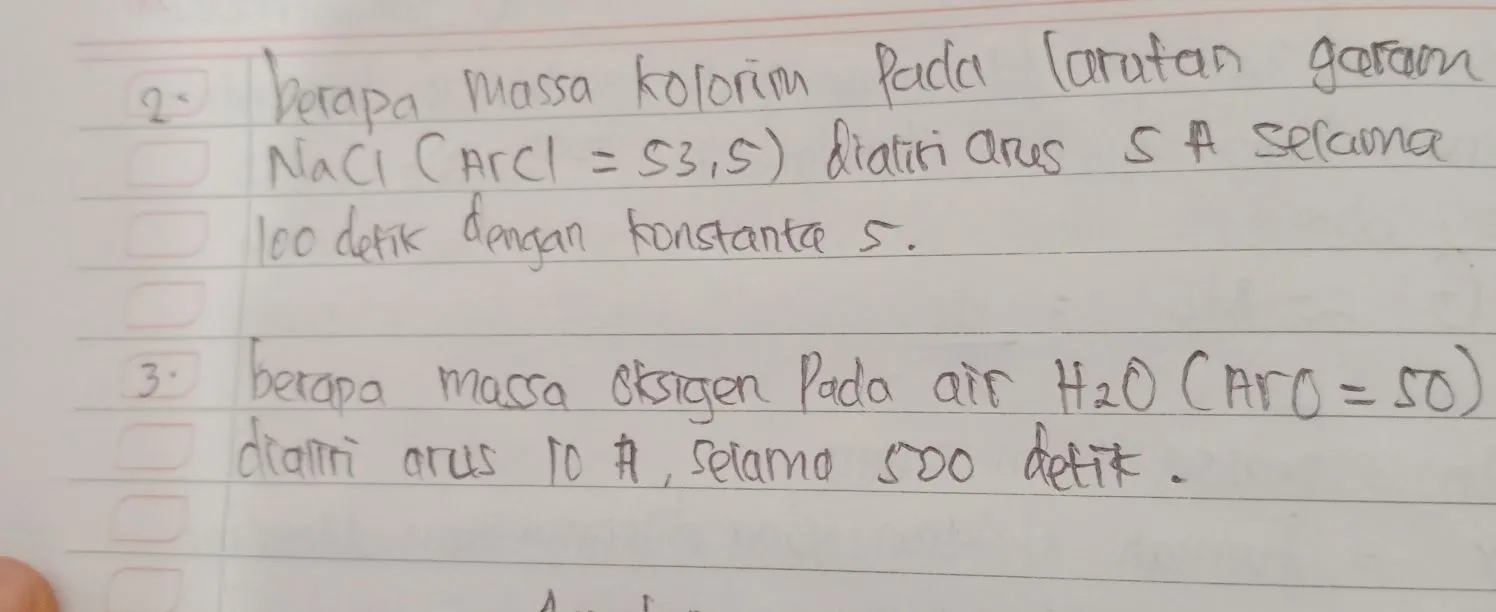 2. berapa massa kolorin Pada larutan garam
NaCl (ArCl = 53,5) dialiri arus 5 A selama
100 detik dengan konstanta 5.
3. berapa massa oksigen Pada air H2O (ArO = 50)
dialiri arus 10 A, selama 500 detik.